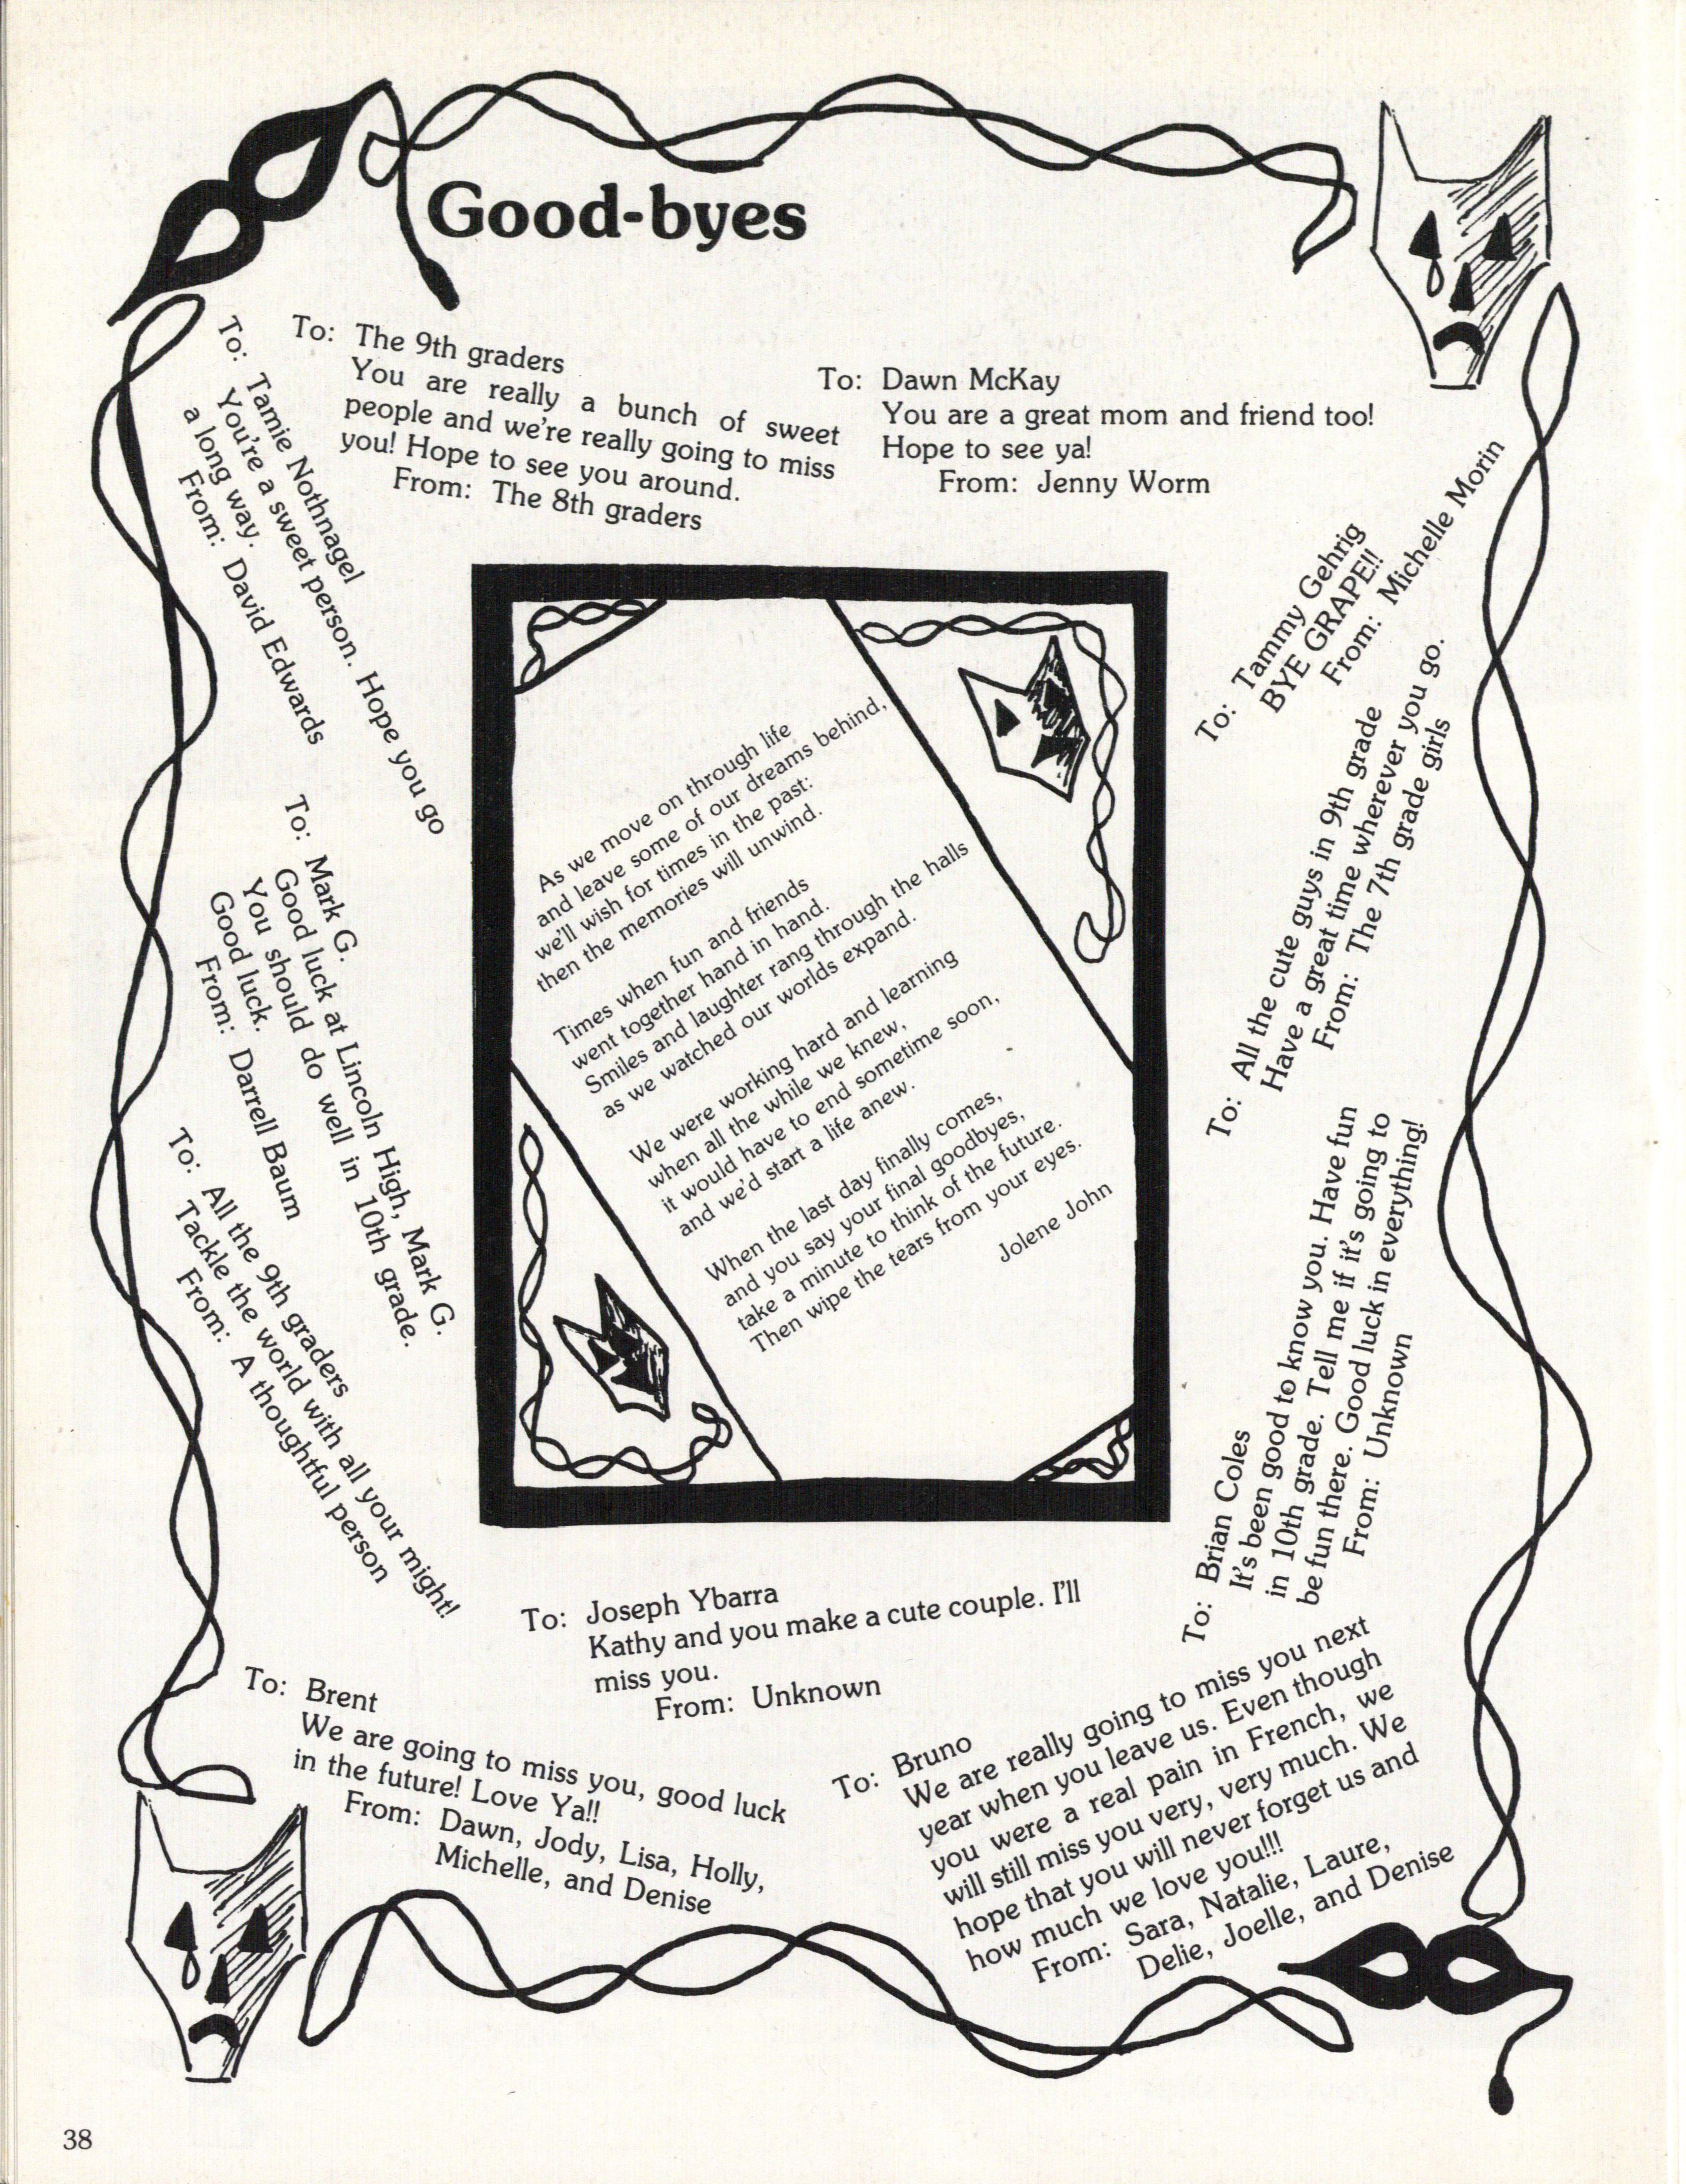 Good-byes
To: The 9th graders
You are really a bunch of sweet
people and we're really going to miss
you! Hope to see you around.
From: The 8th graders
To: Dawn McKay
You are a great mom and friend too!
Hope to see ya!
From: Jenny Worm
To: Tamie Nothnagel
You're a sweet person. Hope you go
a long way.
From: David Edwards
To: Tammy Gehrig
BYE GRAPE!!
From: Michelle Morin
As we move on through life
and leave some of our dreams behind,
we'll wish for times in the past:
then the memories will unwind.
Times when fun and friends
went together hand in hand.
Smiles and laughter rang through the halls
as we watched our worlds expand.
We were working hard and learning
when all the while we knew,
it would have to end sometime soon,
and we'd start a life anew.
When the last day finally comes,
and you say your final goodbyes,
take a minute to think of the future.
Then wipe the tears from your eyes.
Jolene John
To: All the cute guys in 9th grade
Have a great time wherever you go.
From: The 7th grade girls
To: Mark G.
Good luck at Lincoln High, Mark G.
You should do well in 10th grade.
Good luck.
From: Darrell Baum
To: All the 9th graders
Tackle the world with all your might!
From: A thoughtful person
To: Brian Coles
It's been good to know you. Have fun
in 10th grade. Tell me if it's going to
be fun there. Good luck in everything!
From: Unknown
To: Joseph Ybarra
Kathy and you make a cute couple. I'll
miss you.
From: Unknown
To: Brent
We are going to miss you, good luck
in the future! Love Ya!!
From: Dawn, Jody, Lisa, Holly,
Michelle, and Denise
To: Bruno
We are really going to miss you next
year when you leave us. Even though
you were a real pain in French, we
will still miss you very, very much. We
hope that you will never forget us and
how much we love you!!!
From: Sara, Natalie, Laure,
Delie, Joelle, and Denise
38